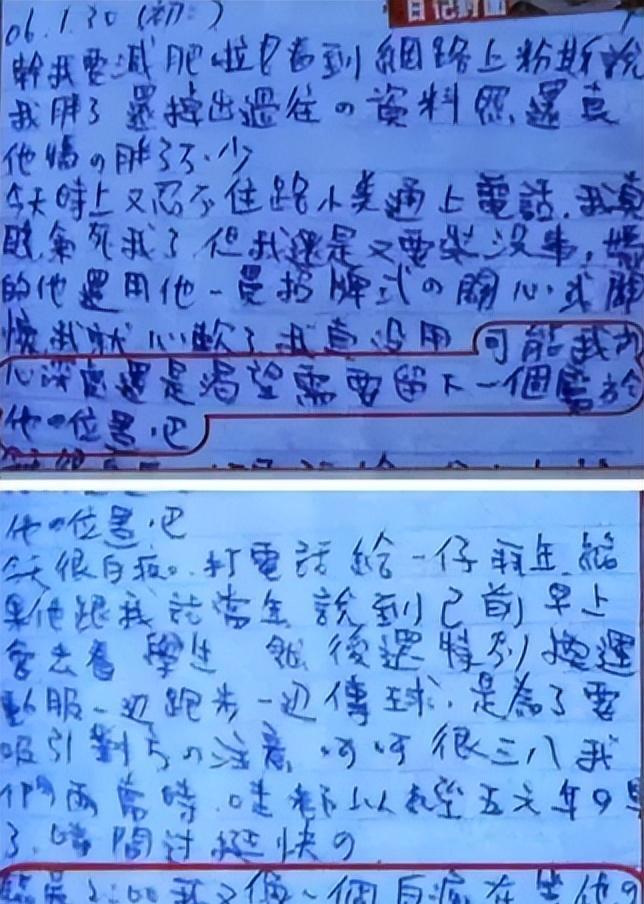 日记封面
06.1.30(初二)
幹我要減肥啦!看到網路上粉斯說
我胖了還捧出過往の資料照,還真
他媽の胖了不少
今天時上又忍不住跟小 通上電話,我真
氣死我了但我還是又要裝沒事,
的他還用他一貫招牌式の關心
我就心軟了我真沒用 可能我內
心深處還是渴望需要留下一個屬於
他の位置吧
他の位置吧
今天很白痴。打電話給一仔拜年,結
果他跟我說當年說到已前早上
會去看學生 然後還特別換運
動服一边跑步一边傳球,是為了要
吸引對方の注意,呵呵很三八我
們兩當時,哇 都以 五六年の
了,時間过挺快の
2:00我又像一個白痴在等他の